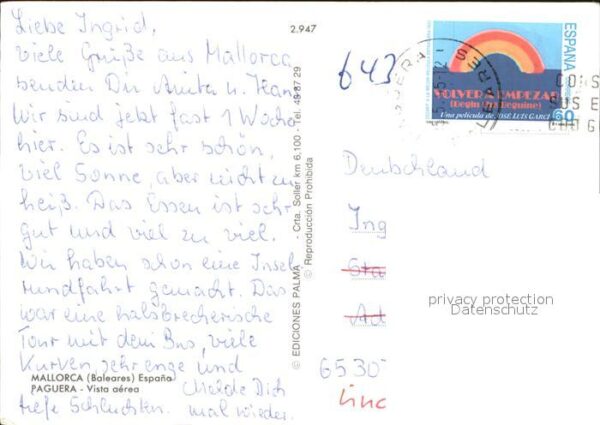 Liebe Ingrid,
viele Grüße aus Mallorca
senden Dir Anita u. Hans
Wir sind jetzt fast 1 Woche
hier. Es ist sehr schön,
viel Sonne, aber nicht zu
heiß. Das Essen ist sehr
gut und viel zu viel.
Wir haben schon eine Insel
rundfahrt gemacht. Das
war eine halsbrecherische
Tour mit dem Bus, viele
Kurven sehr enge und
tiefe Schluchten.
Melde Dich
mal wieder.
MALLORCA (Baleares) España
PAGUERA - Vista aérea
2.947
© EDICIONES PALMA - Crta. Soller km 6,100 - Tel. 45 87 29
© Reproducción Prohibida
643
ESPAÑA
VOLVER A EMPEZAR
(Begin the Beguine)
Una película de JOSÉ LUIS GARCI
60
CONS
SUS E
COD
Deutschland
Ing
6530
privacy protection
Datenschutz